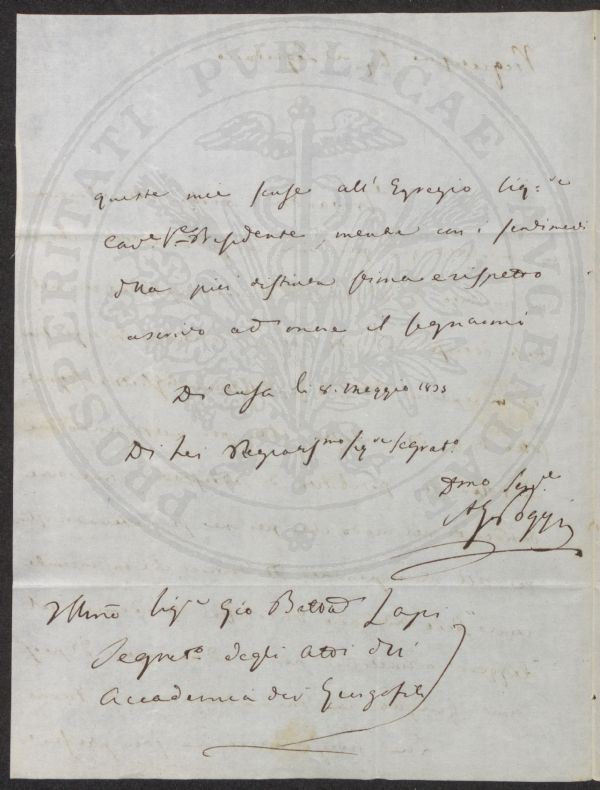 PROSPERITATI PUBLICAE AUGENDAE
queste mie scuse all' Egregio Sig.re
Cav.e V.e Presidente, mentre con i sentimenti
della più distinta stima e rispetto
ascrivo ad onore il segnarmi
Di Casa li 8. Maggio 1833
Di Lei Sig.re Segret.o
Dmo Serv.e
A G Poggi
Illmo Sig.r Gio Batta Lapi
Segret.o degli Atti dell'
Accademia dei Georgofili